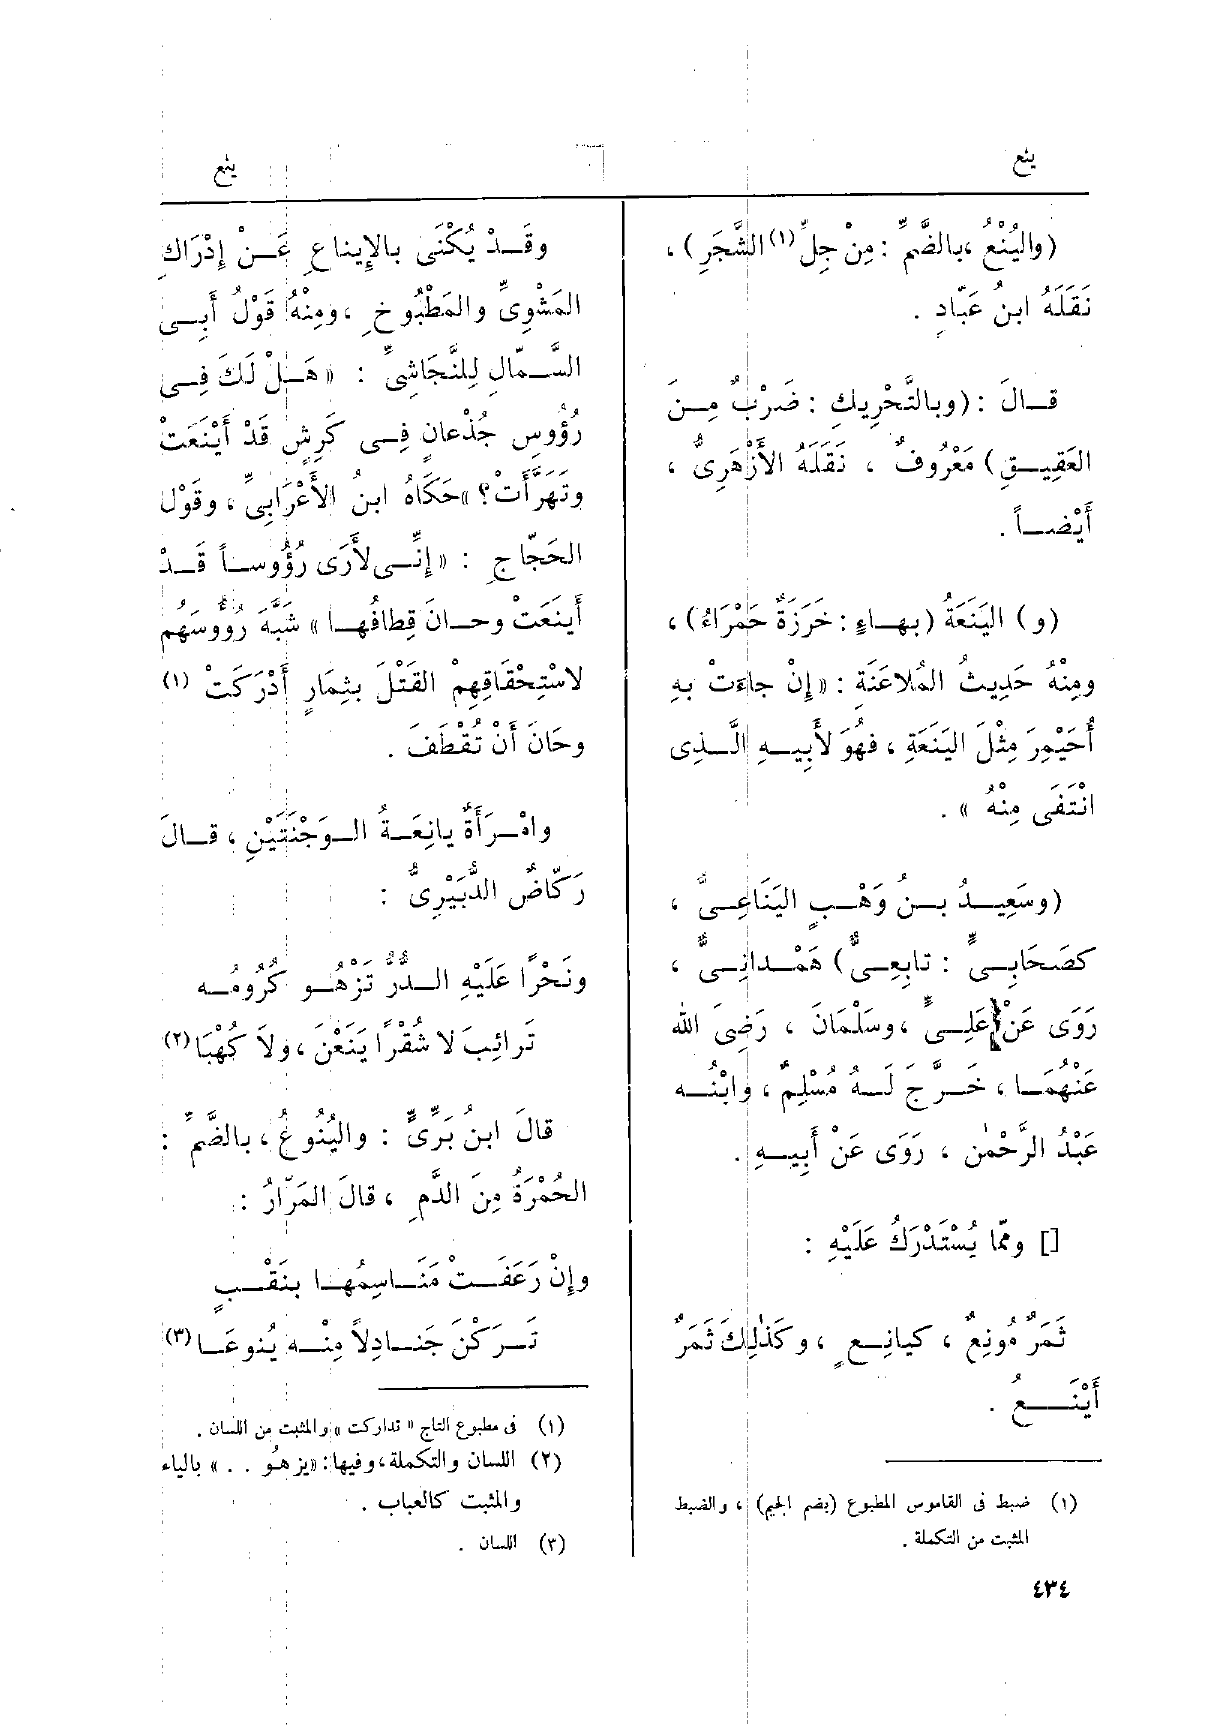 ينع
ينع
(واليُنْعُ ، بالضَّمِّ : مِنْ جِلِّ (١) الشَّجَرِ) ،
نَقَلَهُ ابنُ عَبّادٍ .
قالَ : (وبالتَّحْرِيكِ : ضَرْبٌ مِنَ
العَقِيقِ) مَعْرُوفٌ ، نَقَلَهُ الأَزْهَرِىُّ ،
أَيْضاً .
(و) اليَنَعَةُ (بهاءٍ : خَرَزَةٌ حَمْرَاءُ) ،
ومِنْهُ حَدِيثُ المُلاعَنَةِ : « إِنْ جاءَتْ بِهِ
أُحَيْمِرَ مِثْلَ اليَنَعَةِ ، فهُوَ لأَبِيهِ الَّذِى
انْتَفَى مِنْهُ » .
(وسَعِيدُ بنُ وَهْبٍ اليَنَاعِىُّ ،
كصَحَابِىٍّ : تابِعِىٌّ) هَمْدانِىٌّ ،
رَوَى عَنْ عَلِىٍّ ، وسَلْمَانَ ، رَضِىَ الله
عَنْهُمَا ، خَرَّجَ لَهُ مُسْلِمٌ ، وابْنُه
عَبْدُ الرَّحْمٰن ، رَوَى عَنْ أَبِيهِ .
[] وممّا يُسْتَدْرَكُ عَلَيْهِ :
ثَمَرٌ مُونِعٌ ، كيانِعٍ ، وكَذٰلِكَ ثَمَرٌ
أَيْنَعُ .
(١) ضبط فى القاموس المطبوع (بضم الجيم) ، والضبط
المثبت من التكملة .
وقَدْ يُكْنَى بالإِيناعِ عَنْ إِدْرَاكِ
المَشْوِىِّ والمَطْبُوخِ ، ومِنْهُ قَوْلُ أَبِى
السَّمّالِ لِلنَّجَاشِىِّ : « هَلْ لَكَ فِى
رُؤُوسِ جُذْعانٍ فِى كَرِشٍ قَدْ أَيْنَعَتْ
وتَهَرَّأَتْ؟ » حَكَاهُ ابنُ الأَعْرَابِىِّ ، وقَوْل
الحَجّاجِ : « إِنِّى لأَرَى رُؤُوساً قَدْ
أَينَعَتْ وحانَ قِطافُها » شَبَّهَ رُؤُوسَهُم
لاسْتِحْقَاقِهِمْ القَتْلَ بثِمَارٍ أَدْرَكَتْ (١)
وحَانَ أَنْ تُقْطَفَ .
وامْرَأَةٌ يانِعَةُ الوَجْنَتَيْنِ ، قالَ
رَكّاضٌ الدُّبَيْرِىُّ :
ونَحْرًا عَلَيْهِ الدُّرُّ تَزْهُو كُرُومُه
تَرائِبَ لا شُقْراً يَنَعْنَ ، ولاَ كُهْبَا (٢)
قالَ ابنُ بَرِّىٍّ : واليُنُوعُ ، بالضَّمِّ :
الحُمْرَةُ مِنَ الدَّمِ ، قالَ المَرّارُ :
وإِنْ رَعَفَتْ مَنَاسِمُها بنَقْبٍ
تَرَكْنَ جَنَادِلاً مِنْه يُنوعَا (٣)
(١) فى مطبوع التاج « تداركت » والمثبت من اللسان .
(٢) اللسان والتكملة ، وفيها : «يزهُو . . » بالياء
والمثبت كالعباب .
(٣) اللسان .
٤٣٤